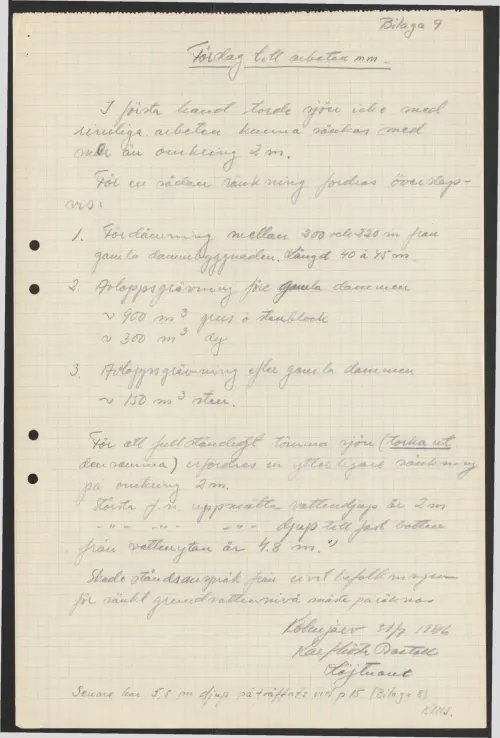 Bilaga 9
Förslag till arbeten mm.
I första hand torde sjön icke med
rimliga arbeten kunna sänkas med
mer än omkring 2 m.
För en sådan sänkning fordras överslags-
vis:
1. Fördämning mellan 200 och 220 m från
gamla dammbyggnaden. Längd 40 à 45 m.
2. Avloppsgrävning före gamla dammen
~ 900 m³ grus o stenblock
~ 300 m³ dy
3. Avloppsgrävning efter gamla dammen
~ 150 m³ sten.
För att fullständigt tömma sjön (torka ut
densamma) erfordras en ytterligare sänkning
på omkring 2 m.
Största f.n. uppmätta vattendjup är 2 m
-"- -"- -"- -"- djup till fast botten
från vattenytan är 4.8 m. *)
Skadeståndsanspråk från civilbefolkningen
för sänkt grundvattennivå måste påräknas
Kölmjärv 29/7 1946
Karl-Gösta
Löjtnant
Senare har 5,5 m djup påträffats vid p 15 (Bilaga 8)